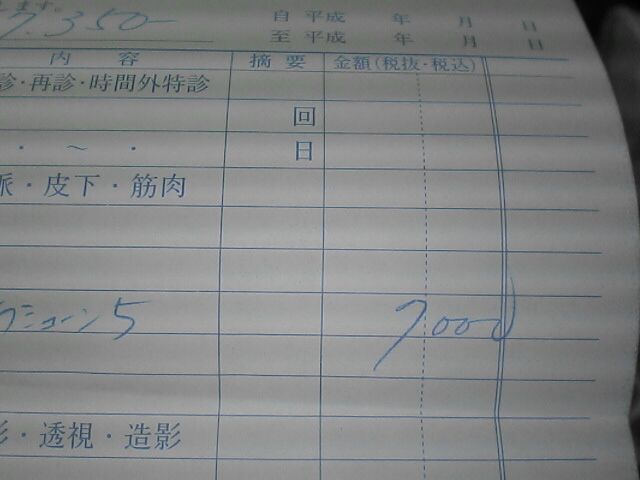 ます。
7.350-
自 平成 年 月 日
至 平成 年 月 日
内 容 摘 要 金額(税抜・税込)
診・再診・時間外特診
回
・ ～ ・ 日
脈・皮下・筋肉
ミューン5 7000
影・透視・造影